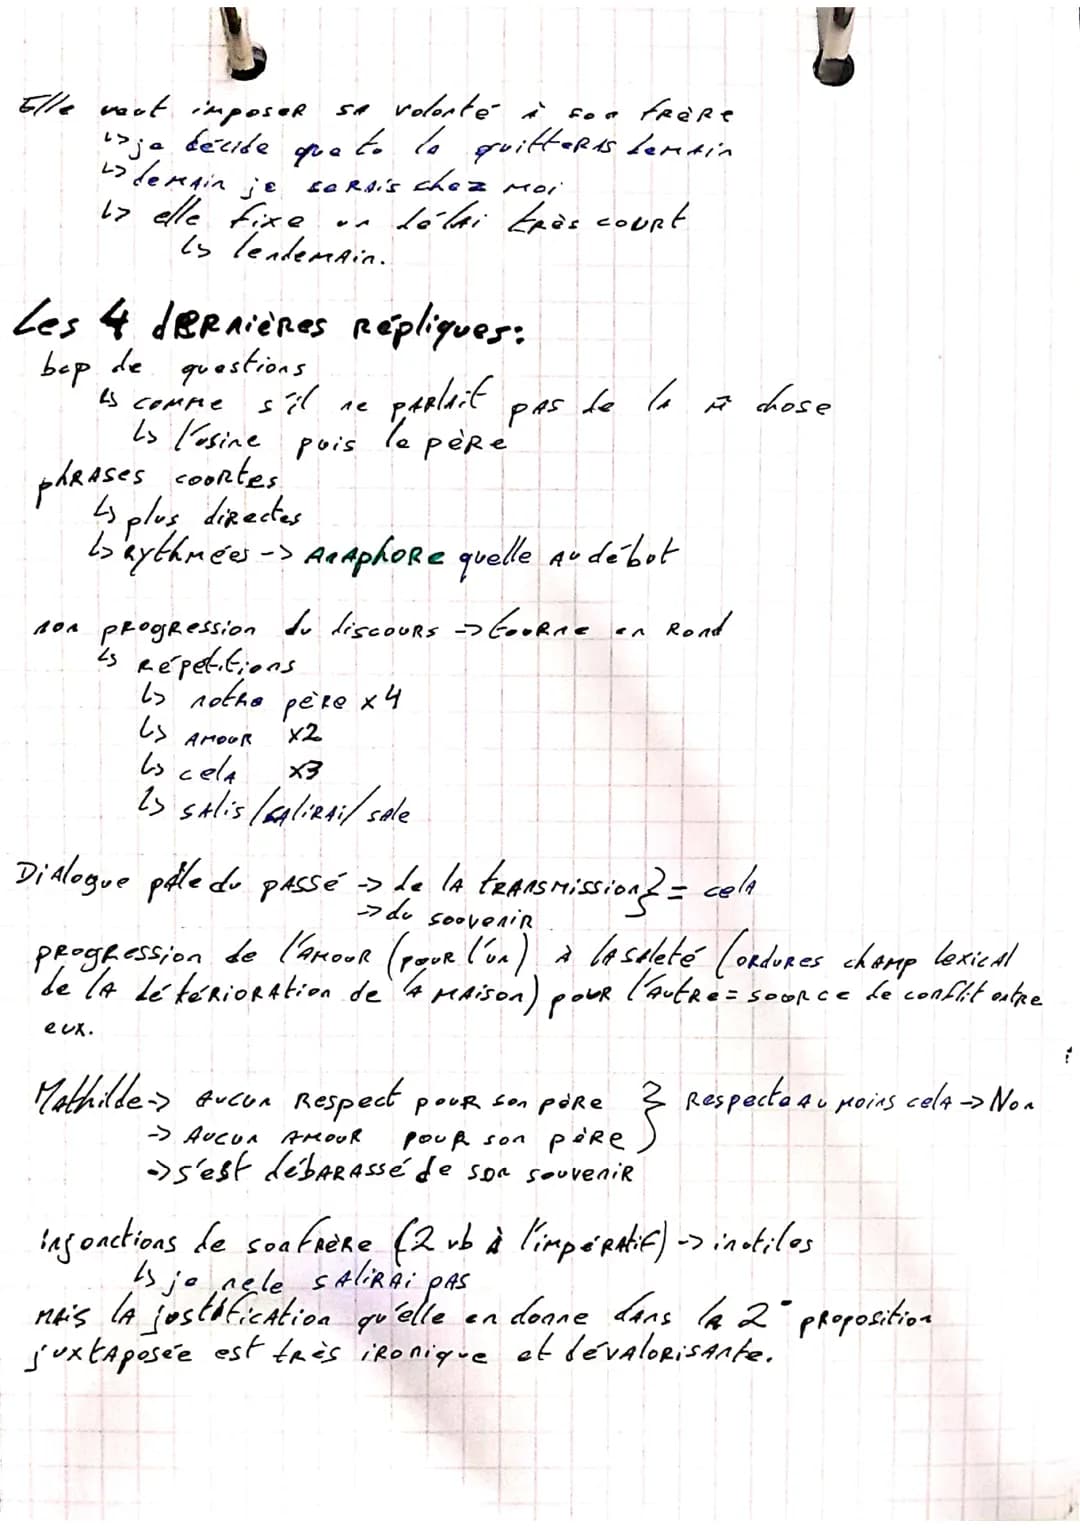 Elle veut imposer sa volonté à son frère
↳ je décide que tu la quitteras demain
↳ demain je serais chez moi
↳ elle fixe un délai très court
↳ lendemain.
Les 4 dernières répliques:
bcp de questions
↳ comme s'il ne parlait pas de la m̂ chose
↳ l'usine puis le père
phrases courtes
↳ plus directes
↳ rythmées -> Anaphore quelle au début
non progression du discours -> tourne en rond
↳ répétitions
↳ notre père x4
↳ amour x2
↳ cela x3
↳ salis/salirai/sale
Dialogue pâle du passé -> de la transmission } = cela
-> du souvenir
progression de l'amour (pour l'un) à la saleté (ordures champ lexical
de la détérioration de la maison) pour l'autre = source de conflit entre
eux.
Mathilde -> aucun respect pour son père } Respecte au moins cela -> Non
-> Aucun amour pour son père
-> s'est débarassé de son souvenir
injonctions de son frère (2 vb à l'impératif) -> inutiles
↳ je ne le salirai pas
mais la justification qu'elle en donne dans la 2° proposition
juxtaposée est très ironique et dévalorisante.